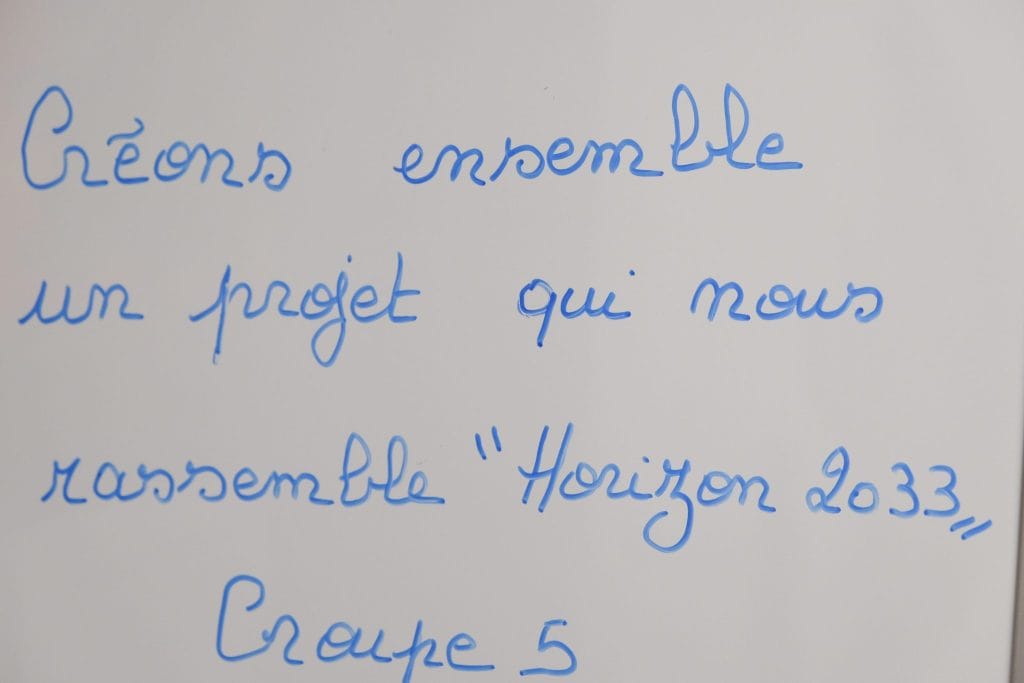 Créons ensemble
un projet qui nous
rassemble "Horizon 2033"
Groupe 5